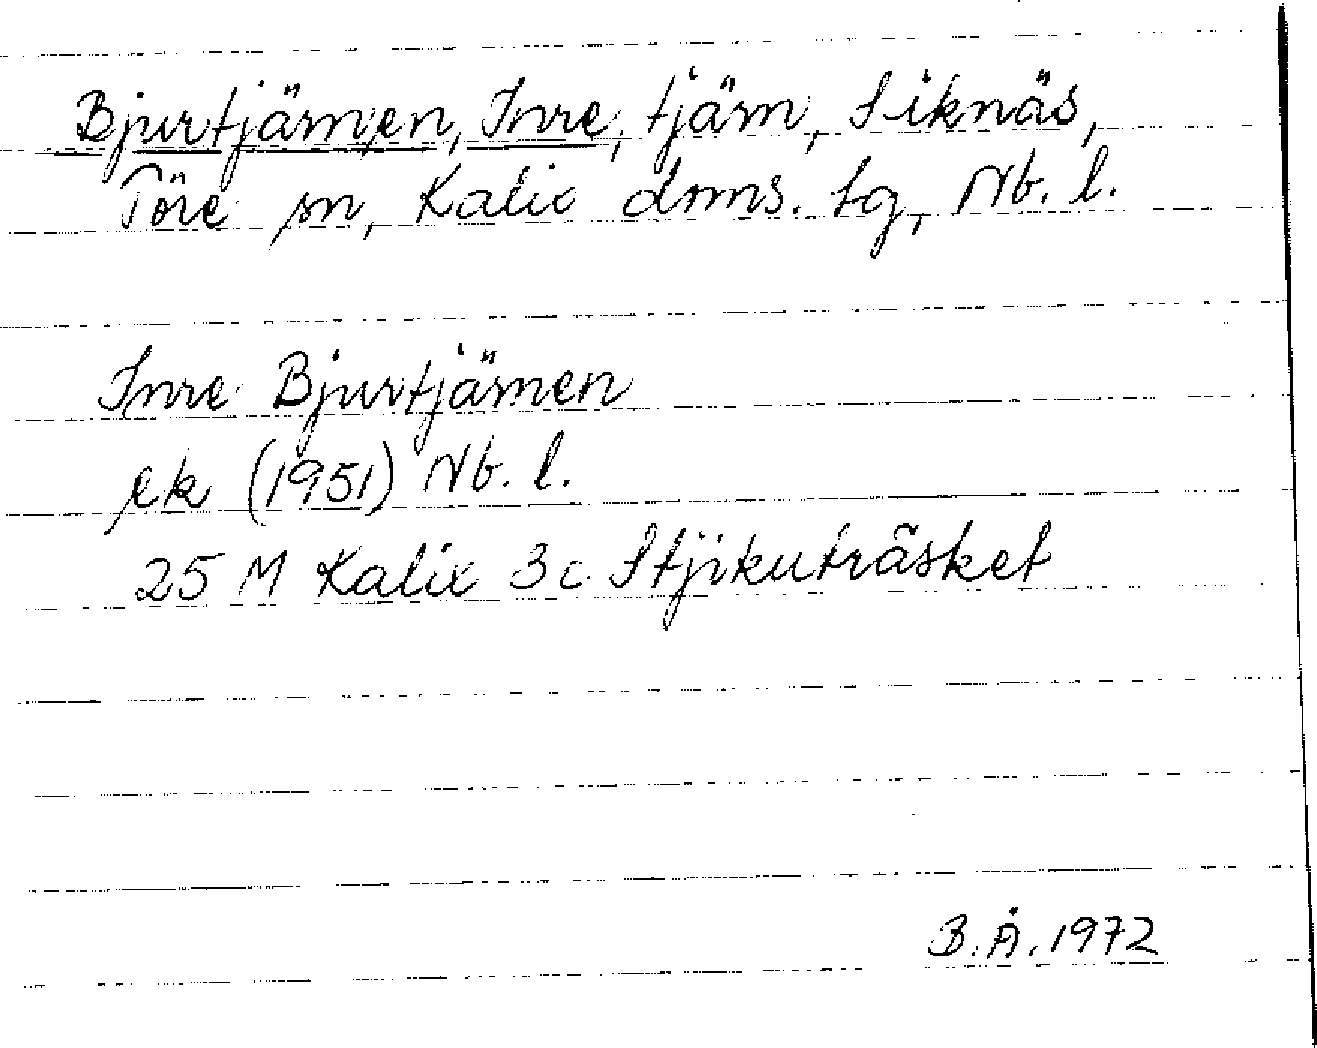 Bjurtjärnen, Inre, tjärn, Siknäs,
Töre sn, Kalix doms. tg, Nb. l.
Inre Bjurtjärnen
ek (1951) Nb. l.
25 M Kalix 3c Stjikuträsket
B.Å. 1972